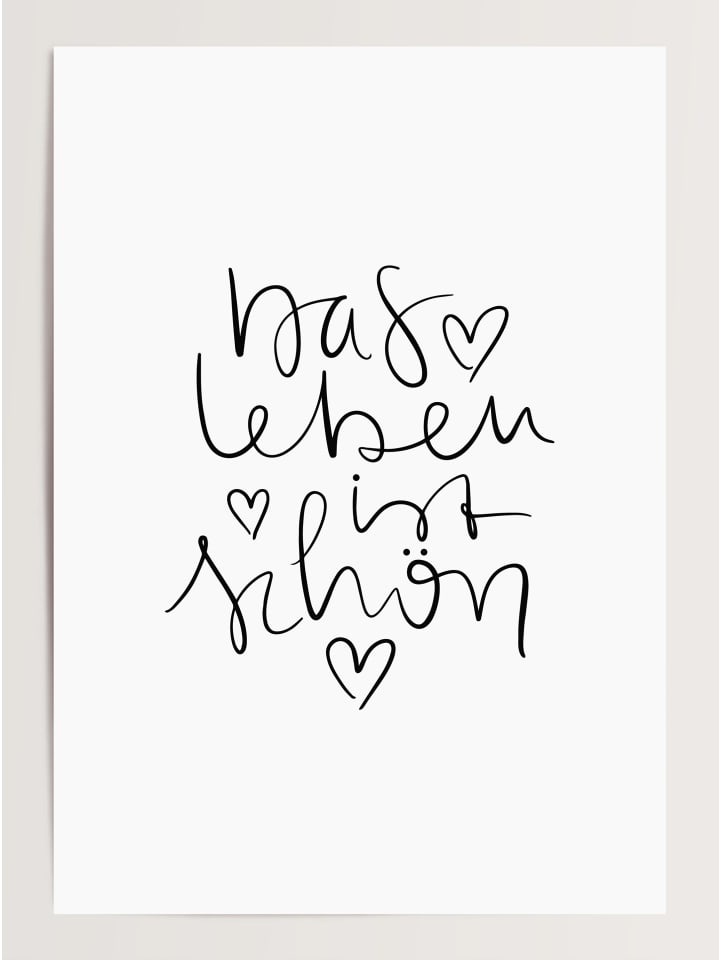 Das
leben
ist
schön